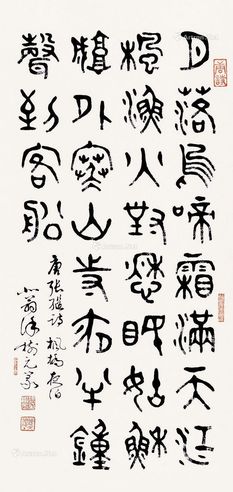 月落烏啼霜滿天江
楓漁火對愁眠姑穌
城外寒山寺夜半鐘
聲到客船
唐張繼詩楓橋夜泊